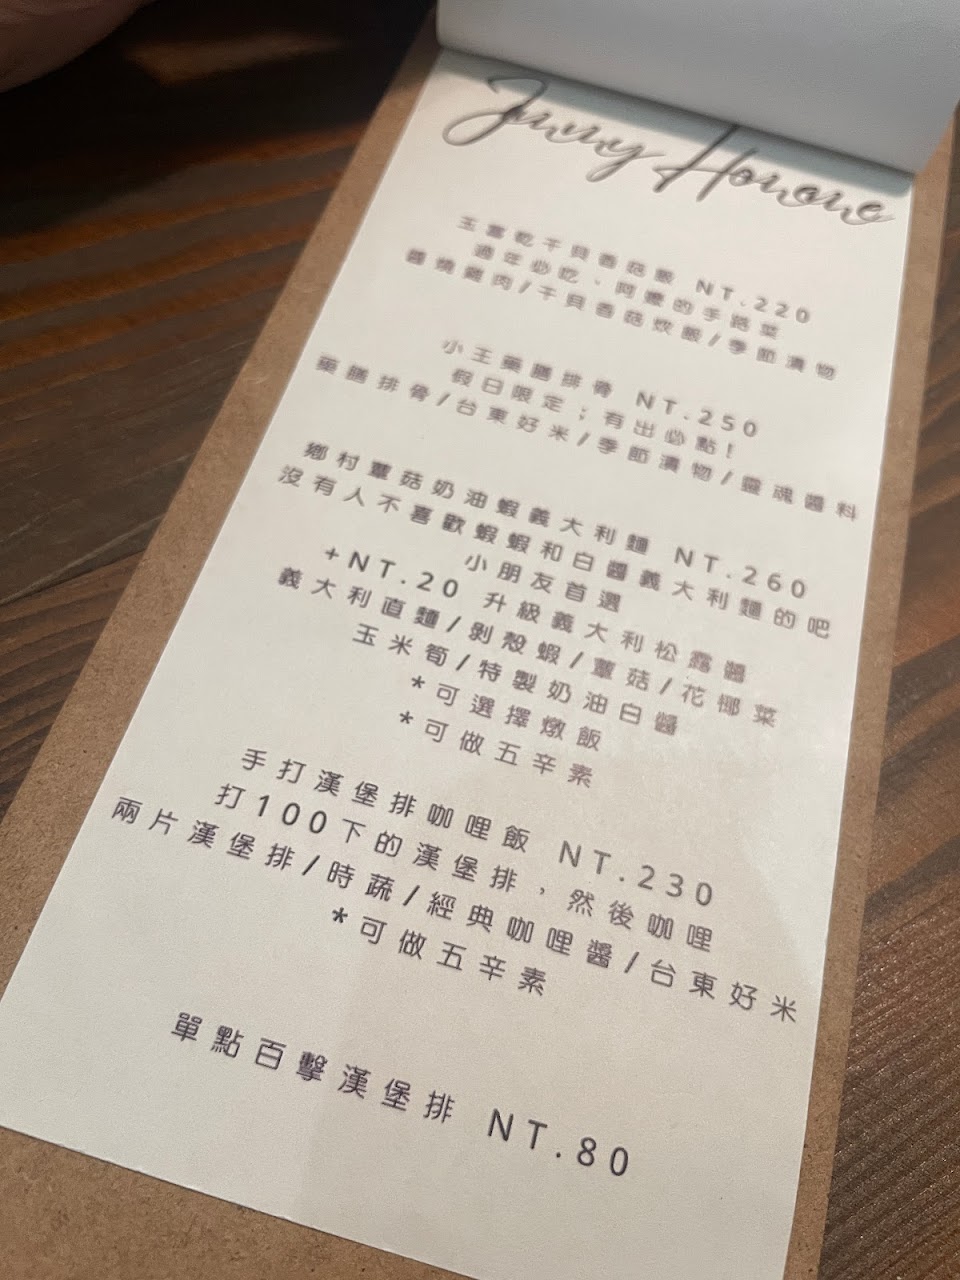 Jinny Honone
玉當乾干貝香菇飯 NT.220
過年必吃、阿嬤的手路菜
醬燒雞肉/干貝香菇炊飯/季節漬物
小王藥膳排骨 NT.250
假日限定;有出必點!
藥膳排骨/台東好米/季節漬物/靈魂醬料
鄉村蕈菇奶油蝦義大利麵 NT.260
沒有人不喜歡蝦蝦和白醬義大利麵的吧
小朋友首選
+NT.20 升級義大利松露醬
義大利直麵/剝殼蝦/蕈菇/花椰菜
玉米筍/特製奶油白醬
*可選擇燉飯
*可做五辛素
手打漢堡排咖哩飯 NT.230
打100下的漢堡排,然後咖哩
兩片漢堡排/時蔬/經典咖哩醬/台東好米
*可做五辛素
單點百擊漢堡排 NT.80